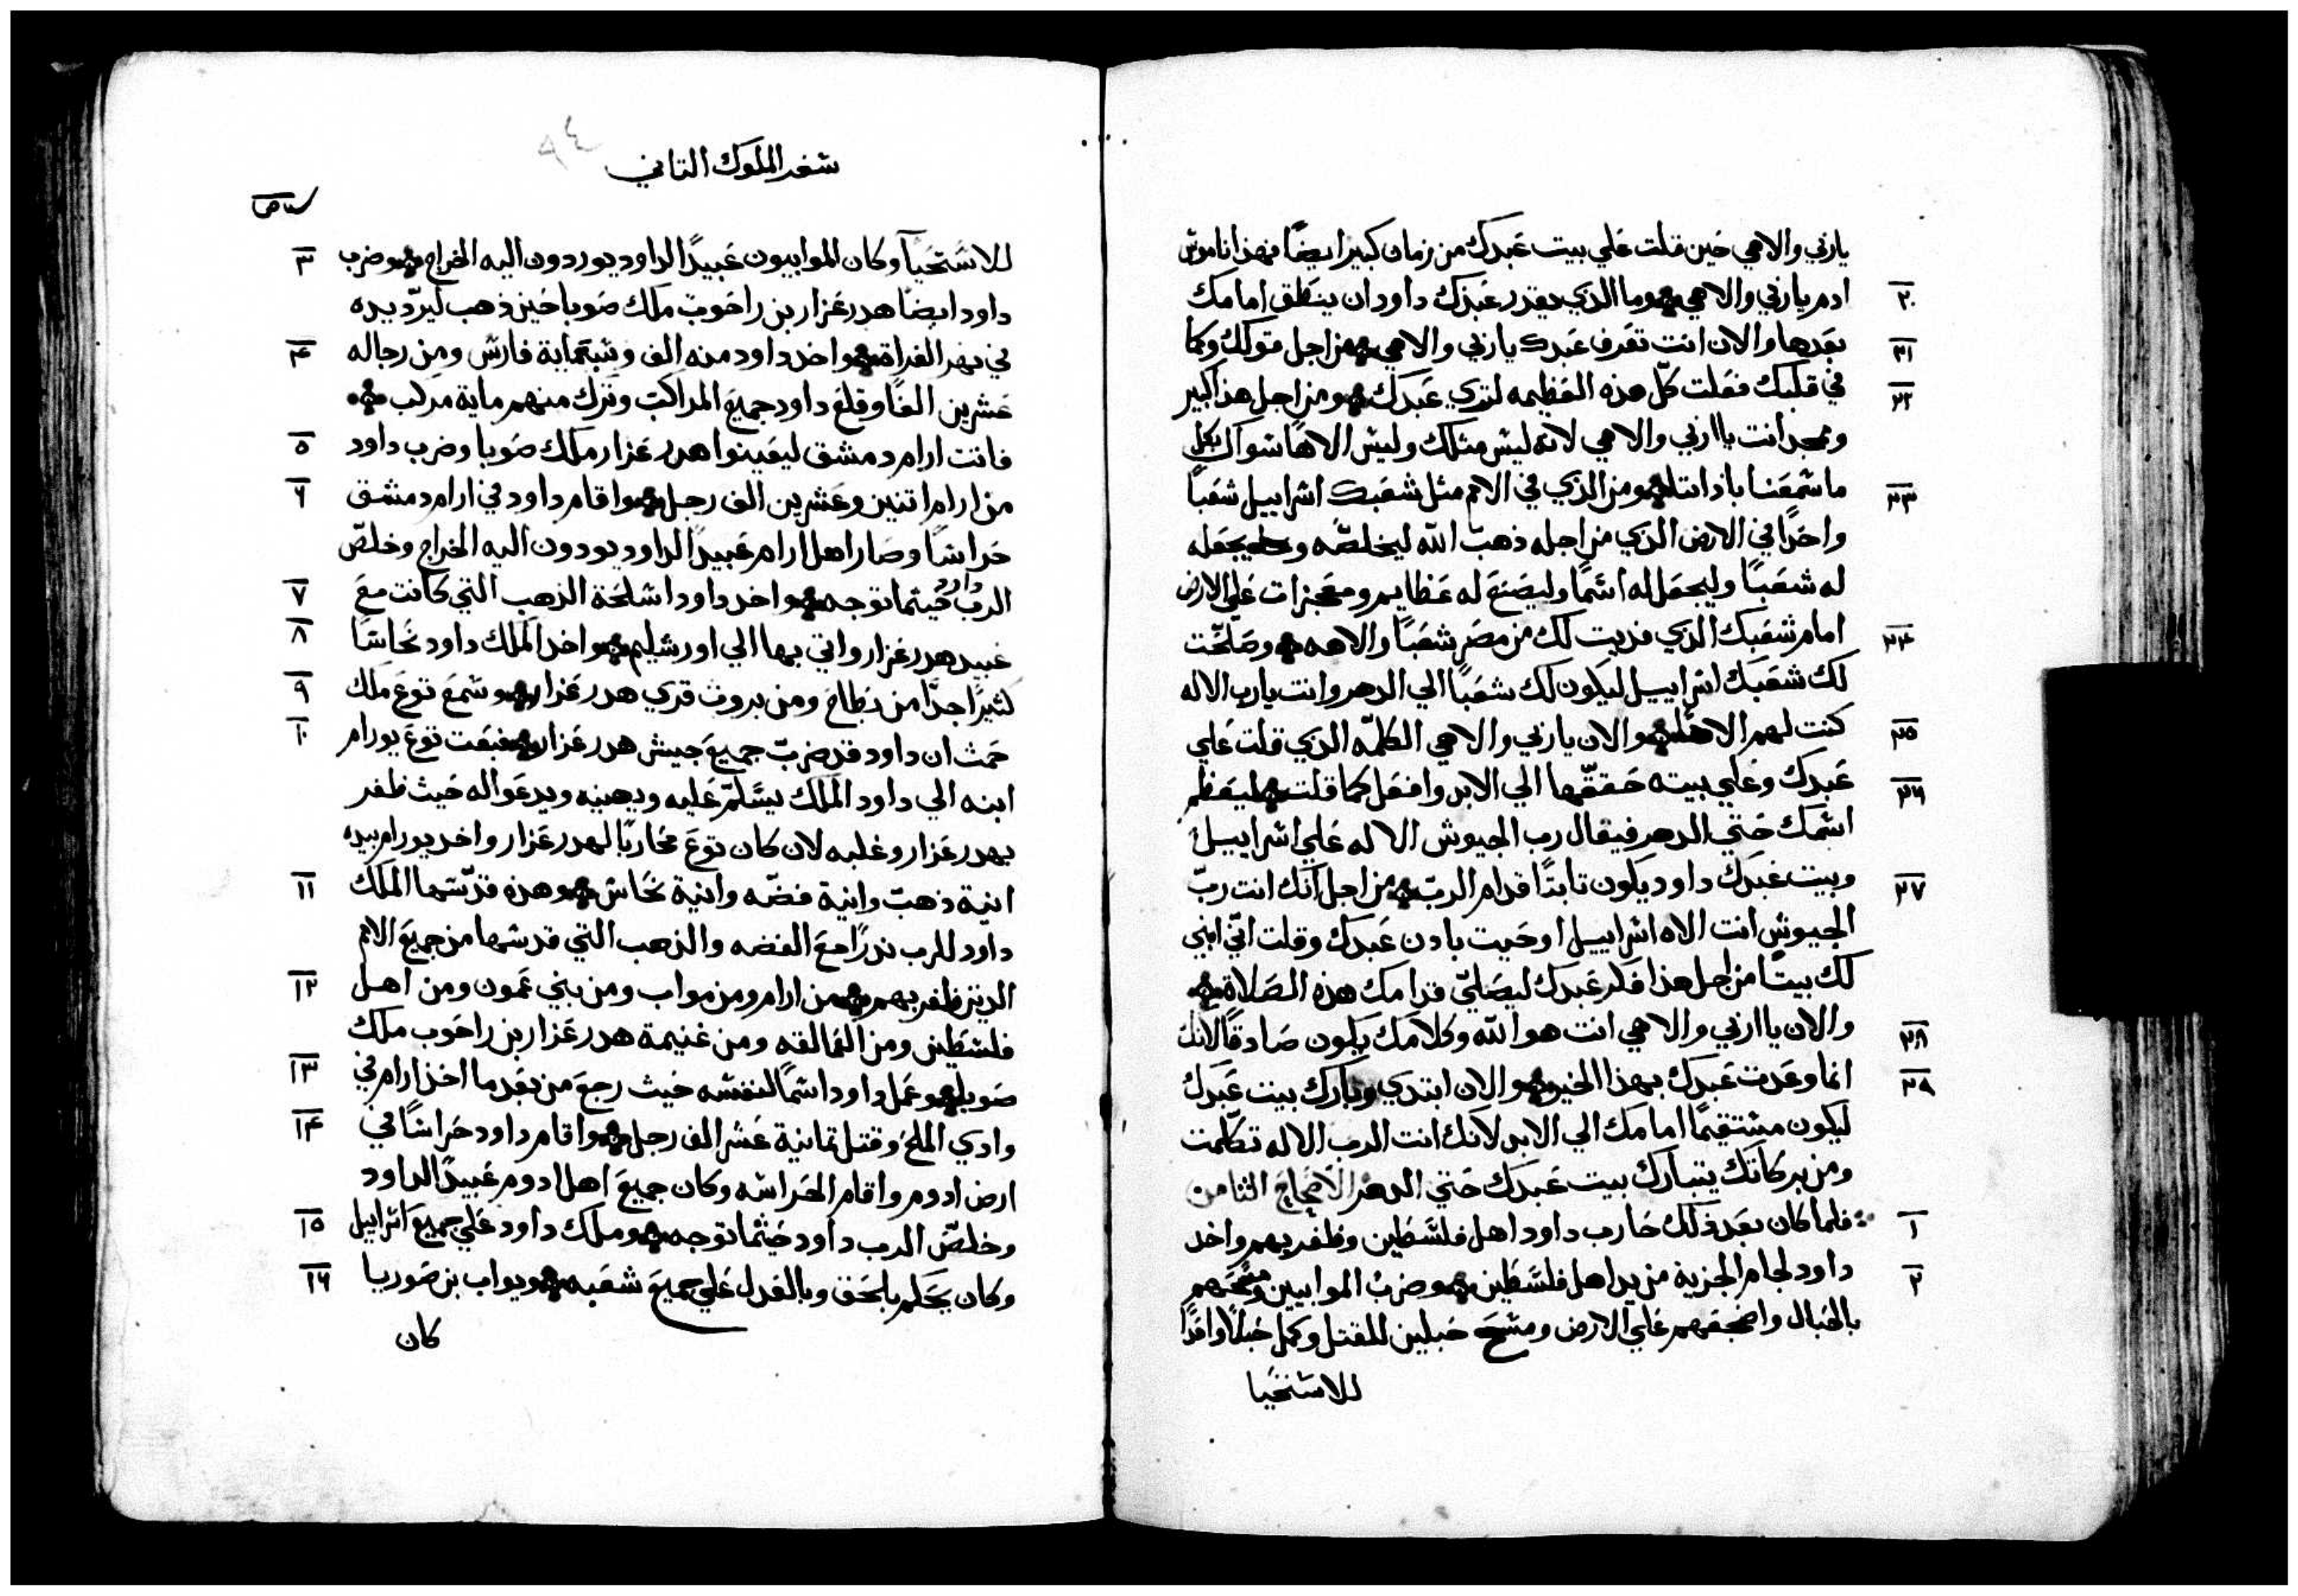 ياربي والاهي حين قلت علي بيت عبدك من زمان كبير ايضًا فهذا ناموس
٢٠ ادم ياربي والاهي وما الذي يقدر عبدك داود ان ينطق امامك
٢١ بعدها والان انت تعرف عبدك ياربي والاهي من اجل قولك وكما
٢٢ في قلبك فعلت كلّ هذه العظيمه لتري عبدك ومن اجل هذا كبير
وممجد انت يااربي والاهي لانه ليس مثلك وليس الاهًا سواك بكل
٢٣ ما سمعنا باذاننا ومن الذي في الامم مثل شعبك اسراييل شعبًا
واحدًا في الارض الذي من اجله ذهب اللّه ليخلصّه ويجعله
له شعبًا وليجعل له اسمًا وليصنع له عظايم ومعجزات علي الارض
٢٤ امام شعبك الذي فديت لك من مصر شعبًا والاهه وصلحّت
لك شعبك اسراييل ليكون لك شعبًا الي الدهر وانت يارب الاله
٢٥ كنت لهم الاهًا والان ياربي والاهي الكلمّه الذي قلت علي
٢٦ عبدك وعلي بيته حققّها الي الابد وافعل كما قلت ليعظم
اسمك حتي الدهر فيقال رب الجيوش الاله علي اسراييل
٢٧ وبيت عبدك داود يكون تابتًا قدام الربّ من اجل انك انت ربّ
الجيوش انت الاه اسراييل اوحيت بادن عبدك وقلت انّي ابني
لك بيتًا من اجل هذا فكر عبدك ليصليّ قدامك هذه الصلاة
٢٨ والان يااربي والاهي انت هو اللّه وكلامك يكون صادقًا لانك
٢٩ انما وعدت عبدك بهذا الخير والان ابتدي وبارك بيت عبدك
ليكون مستقيمًا امامك الي الابد لانك انت الرب الاله تكلّمت
ومن بركاتك يتبارك بيت عبدك حتي الدهر الاصحاح الثامن
١ فلما كان بعد ذلك حارب داود اهل فلسطين وظفر بهم واخد
٢ داود لجام الجزية من يد اهل فلسطين وضرب الموابيين ومسحهم
بالحبال واضجعهم علي الارض ومسح حبلين للقتل وكمل حبلًا واحدًا
للاستحيا
سفر الملوك التاني
٩٤
٣ للاستحيآ وكان الموابيون عبيدًا لداود يوردون اليه الخراج وضرب
داود ايضًا هدرعزار بن راحوب ملك صوبا حين ذهب ليردّ يده
٤ في نهر الفراة واخد داود منه الف وسبعماية فارس ومن رجاله
عشرين الفًا وقلع داود جميع المراكب وترك منهم ماية مركب
٥ فاتت ارام دمشق ليعينوا هدرعزار ملك صوبا وضرب داود
٦ من ارام اتنين وعشرين الف رجل واقام داود في ارام دمشق
حراسًا وصار اهل ارام عبيدًا لداود يودون اليه الخراج وخلصّ
٧ الرب داود حيتما توجه واخد داود اسلحة الذهب التي كانت مع
٨ عبيد هدرعزار واتي بها الي اورشليم واخد الملك داود نحاسًا
٩ كثيرًا جدًّا من بطاح ومن بروث قري هدرعزار وسمع توع ملك
١٠ حمث ان داود قد ضربّ جميع جيش هدرعزار فبعت توع يورام
ابنه الي داود الملك يسلّم عليه ويهنيه ويدعواله حيث ظفر
بهدرعزار وغلبه لان كان توع محاربًا لهدرعزار واخد يورام بيده
١١ انية ذهب وانية فضّه وانية نحاس وهذه قدّسها الملك
داود للرب ندرًا مع الفضه والذهب التي قدسها من جميع الامم
١٢ الدين ظفر بهم من ارام ومن مواب ومن بني عمون ومن اهل
فلسطين ومن العمالقه ومن غنيمة هدرعزار بن راحوب ملك
١٣ صوبا وعمل داود اسمًا لنفسه حيث رجع من بعد ما اخذ ارام في
١٤ وادي الملح وقتل تمانية عشر الف رجل واقام داود حراسًا في
ارض ادوم واقام الحراسه وكان جميع اهل ادوم عبيدًا لداود
١٥ وخلصّ الرب داود حيثما توجه وملك داود علي جميع اسراييل
١٦ وكان يحكم بالحق وبالعدل علي جميع شعبه ويواب بن صوريا
كان